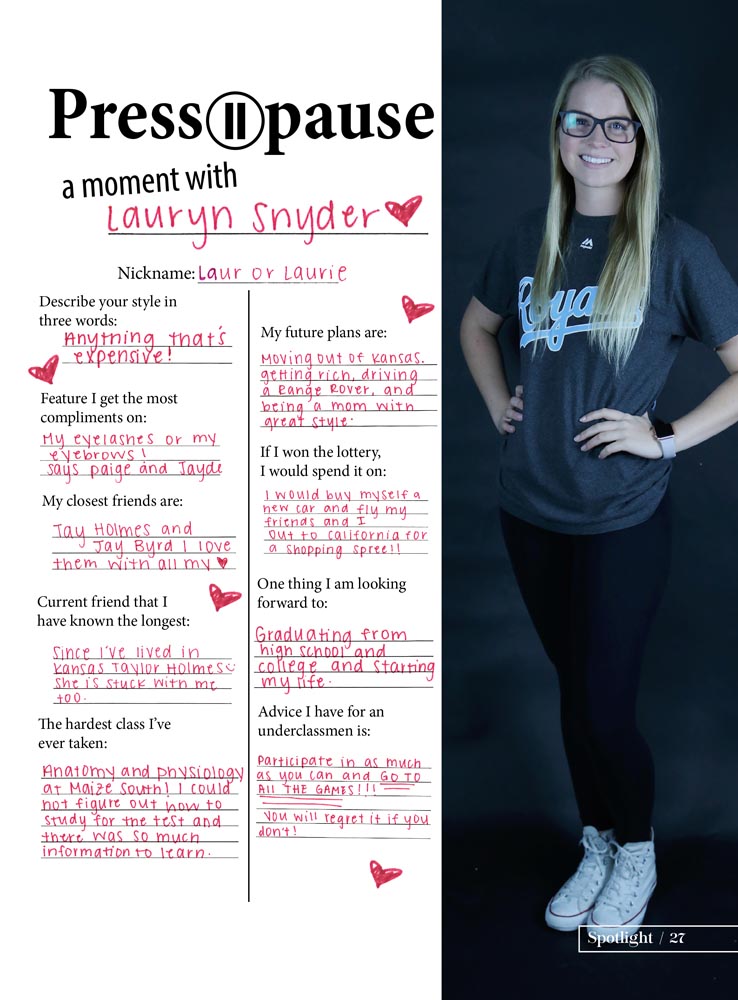 Press pause
a moment with
Lauryn Snyder
Nickname: Laur or Laurie
Describe your style in
three words:
Anything that's
expensive!
Feature I get the most
compliments on:
My eyelashes or my
eyebrows!
says paige and Jayde
My closest friends are:
Tay Holmes and
Jay Byrd I love
them with all my ♥
Current friend that I
have known the longest:
Since I've lived in
Kansas Taylor Holmes
she is stuck with me
too.
The hardest class I've
ever taken:
Anatomy and physiology
at Maize South! I could
not figure out how to
study for the test and
there was so much
information to learn.
My future plans are:
Moving out of Kansas.
getting rich, driving
a Range Rover, and
being a mom with
great style.
If I won the lottery,
I would spend it on:
I would buy myself a
new car and fly my
friends and I
out to California for
a shopping spree!!
One thing I am looking
forward to:
Graduating from
high school and
college and starting
my life.
Advice I have for an
underclassmen is:
Participate in as much
as you can and GO TO
All THE GAMES!!!
You will regret it if you
don't!
Royals
Spotlight / 27